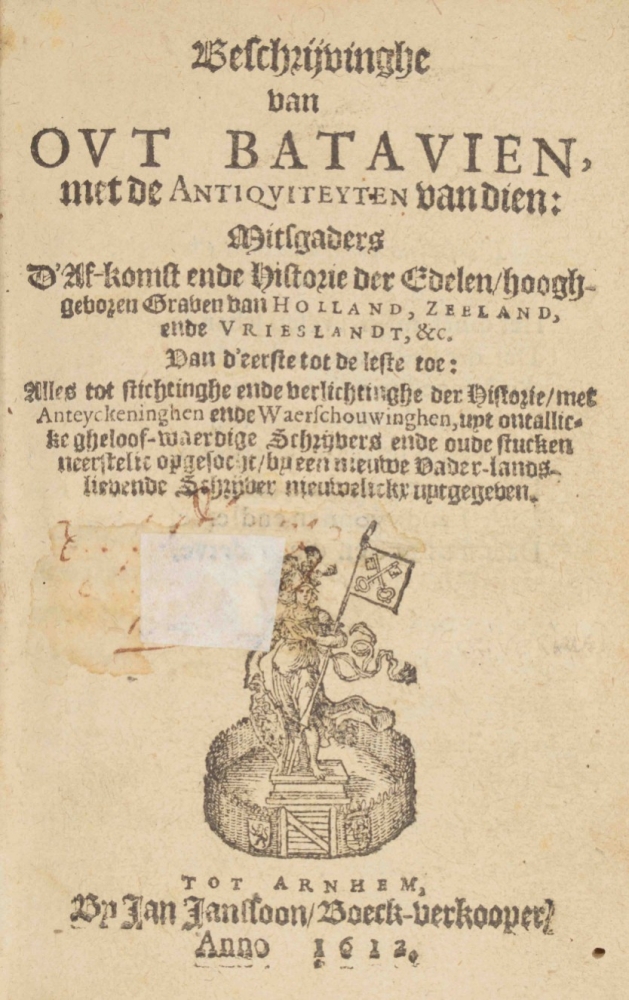 Beſchrijvinghe
van
OVT BATAVIEN,
met de ANTIQVITEYTEN van dien:
Mitſgaders
D'Af-komſt ende Hiſtorie der Edelen/hoogh-
geboren Graven van HOLLAND, ZEELAND,
ende VRIESLANDT, &c.
Van d'eerſte tot de leſte toe:
Alles tot ſtichtinghe ende verlichtinghe der Hiſtorie/met
Anteyckeninghen ende Waerſchouwinghen, uyt ontallic-
ke gheloof-waerdige Schrijvers ende oude ſtucken
neerſtelic opgeſocht/by een nieuwe Vader-lands-
lievende Schrijver nieuwelickx uytgegeven.
TOT ARNHEM,
By Jan Janſſoon/Boeck-verkooper/
Anno 1612.